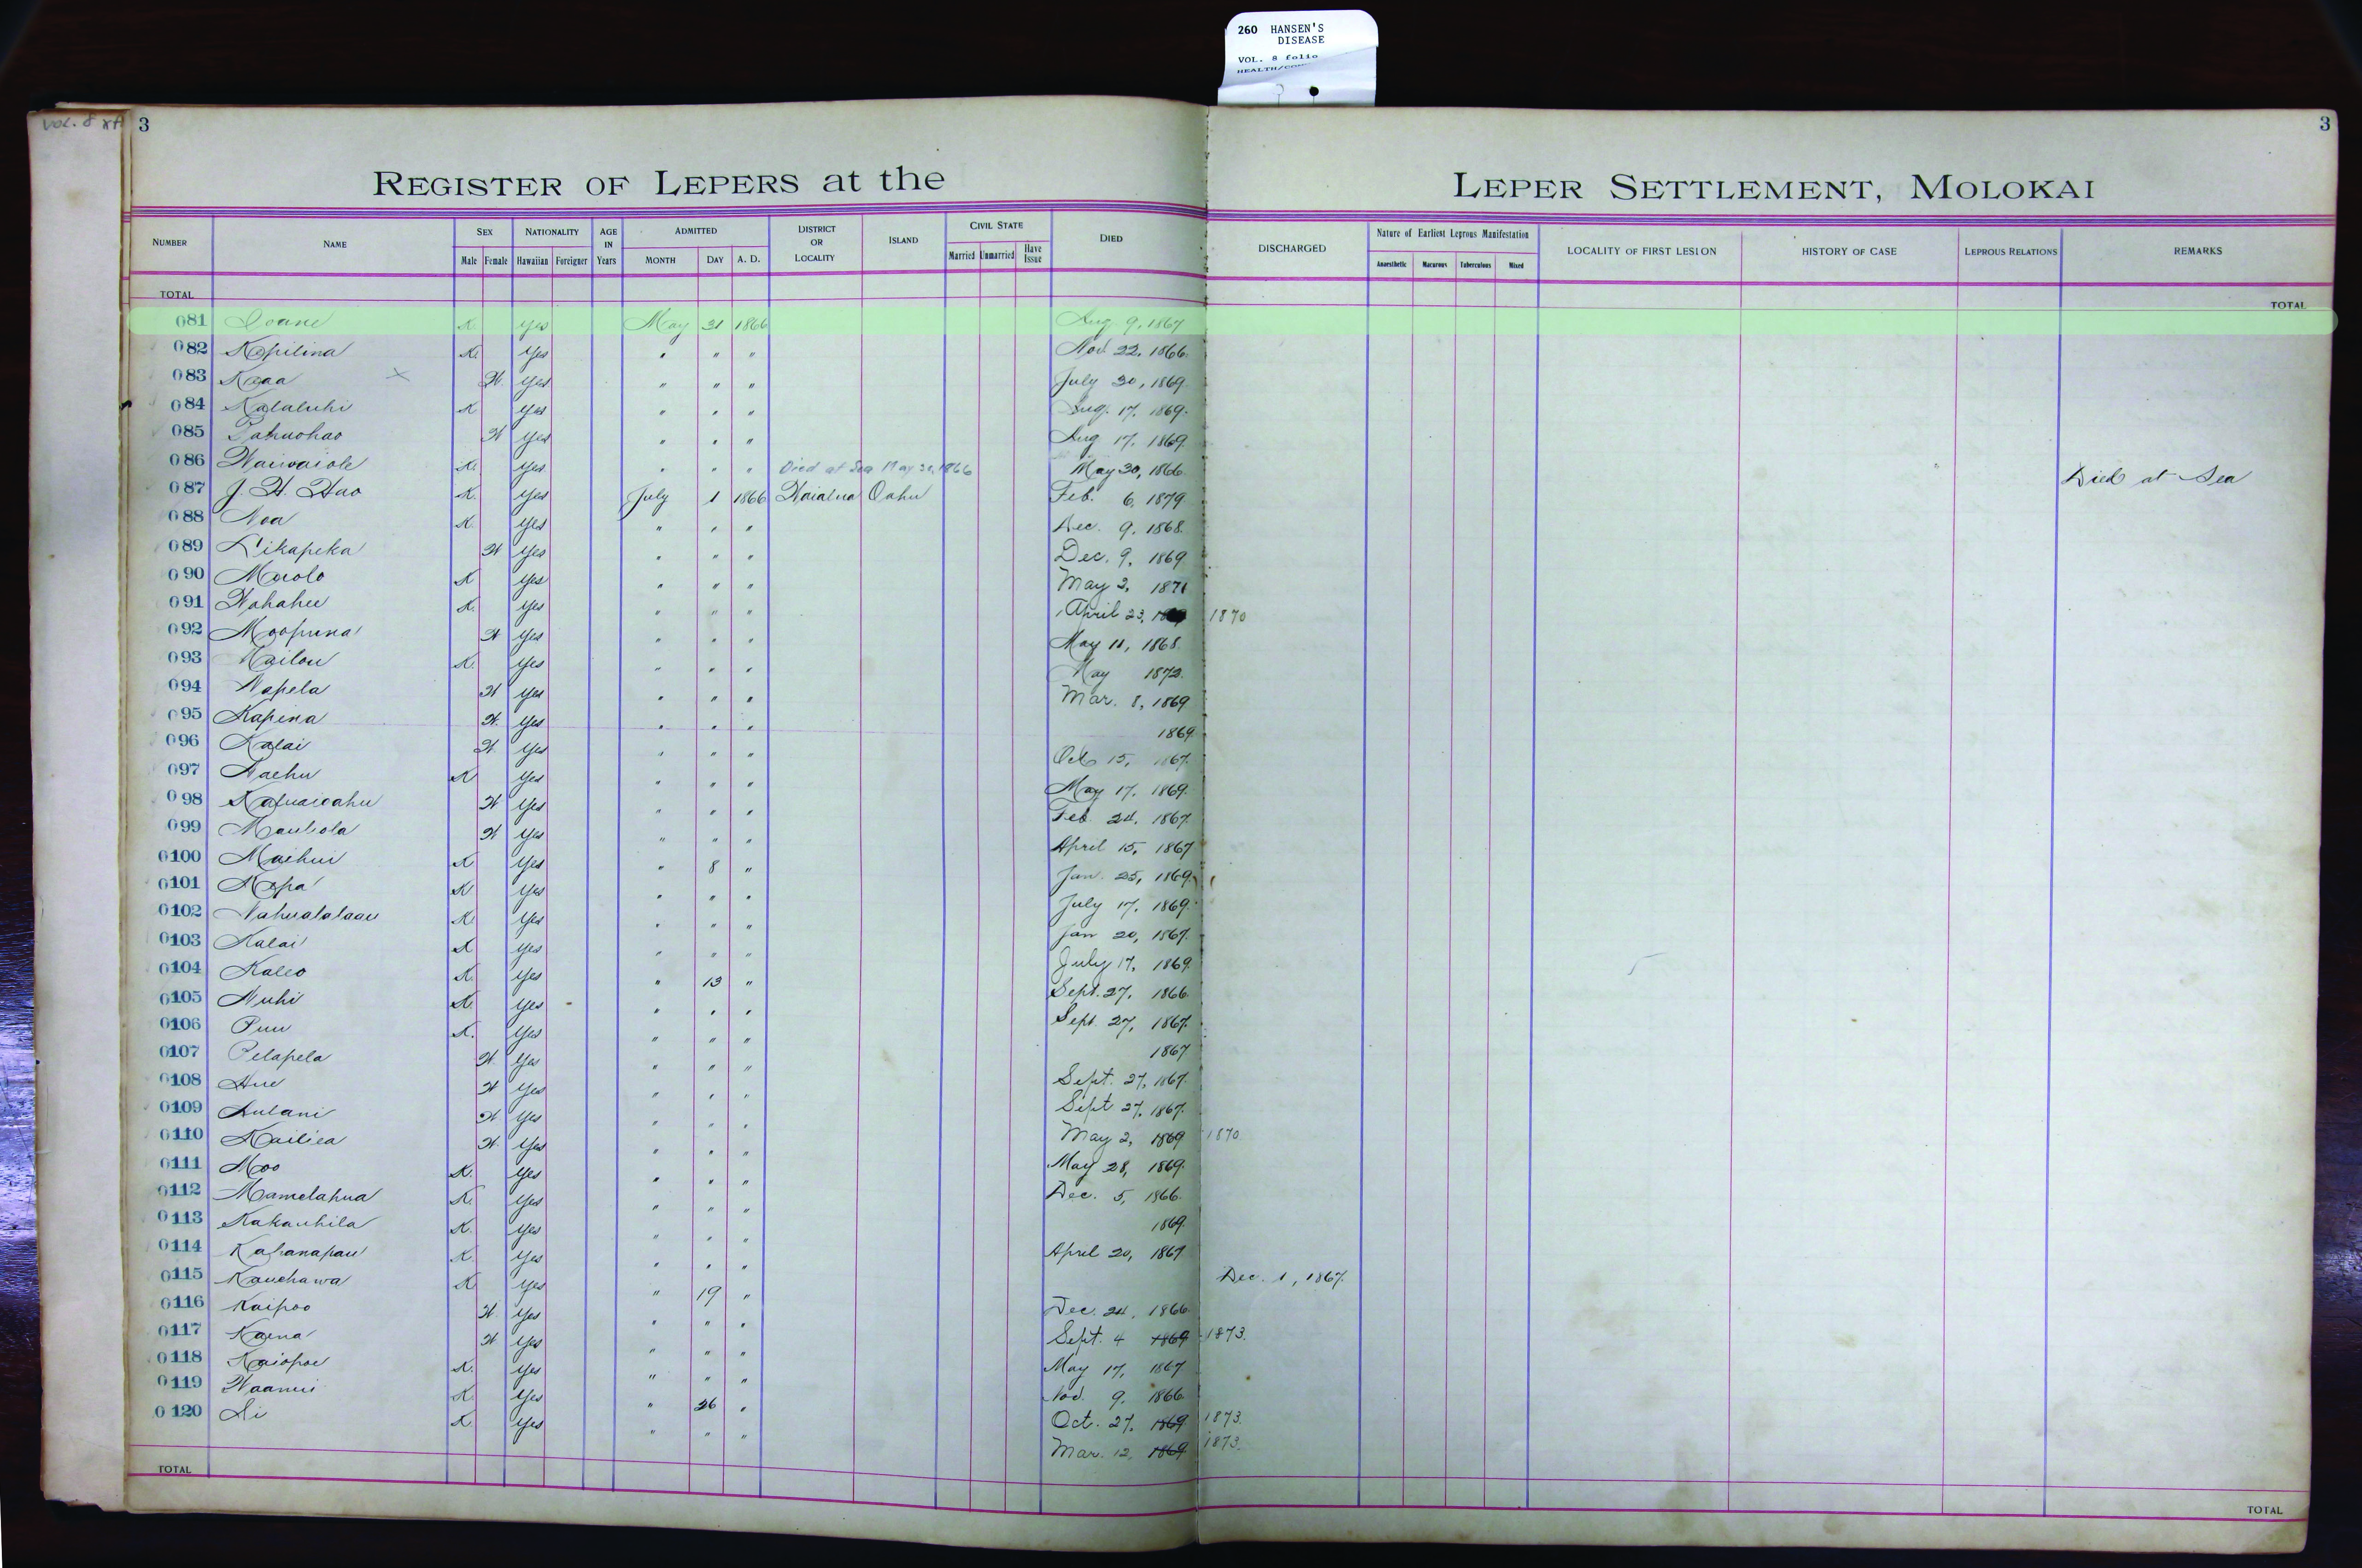 260 HANSEN'S
DISEASE
VOL. 8 folio
VOL. 8
3
3
REGISTER OF LEPERS at the LEPER SETTLEMENT, MOLOKAI
NUMBER NAME SEX NATIONALITY AGE IN Years ADMITTED DISTRICT OR LOCALITY ISLAND CIVIL STATE DIED DISCHARGED Nature of Earliest Leprous Manifestation LOCALITY OF FIRST LESION HISTORY OF CASE LEPROUS RELATIONS REMARKS
Male Female Hawaiian Foreigner MONTH DAY A. D. Married Unmarried Have Issue Anaesthetic Macurous Tuberculous Mixed
TOTAL TOTAL
081 Ioane K. Yes May 31 1866 Aug 9, 1867
082 Kapilina K. Yes " " " Nov. 22, 1866.
083 Kaaa W. Yes " " " July 30, 1869.
084 Kalaluhi K Yes " " " Aug. 17, 1869.
085 W Yes " " " Aug 17, 1869.
086 Waiwaiole K. Yes " " " Died at Sea May 30, 1866 May 30, 1866. Died at Sea
087 J. H. Hao K. Yes July 1 1866 Waialua Oahu Feb. 6, 1879
088 Noa K. Yes " " " Dec. 9, 1868.
089 Likapeka W Yes " " " Dec. 9, 1869
090 K Yes " " " May 2, 1871
091 Wahahee K. Yes " " " April 23, 1870
092 Moopuna W Yes " " " May 11, 1868.
093 Kailou K. Yes " " " May 1872.
094 Napela W Yes " " " Mar. 8, 1869
095 Kapina W. Yes " " " 1869.
096 Kalai W Yes " " " Oct 15, 1867.
097 Naehu K Yes " " " May 17, 1869.
098 W Yes " " " Feb. 24, 1867.
099 Mauliola W Yes " " " April 15, 1867
0100 Maihui K Yes " 8 " Jan. 25, 1869.
0101 K Yes " " " July 17, 1869.
0102 Nahualalaau K. Yes " " " Jan 20, 1867.
0103 Kalai K Yes " " " July 17, 1869.
0104 Kaleo K. Yes " 13 " Sept. 27, 1866.
0105 Nuhi K. Yes " " " Sept. 27, 1867.
0106 Puu K. Yes " " " 1867
0107 Pelapela W Yes " " " Sept. 27, 1867.
0108 Hue W Yes " " " Sept 27, 1867.
0109 Lulani W Yes " " " May 2, 1869 1870.
0110 Kailiea W. Yes " " " May 28, 1869.
0111 Moo K. Yes " " " Dec. 5, 1866.
0112 Mamelahua K. Yes " " " 1869.
0113 Kakauhila K. Yes " " " April 20, 1867
0114 Kahanapau K. Yes " " " Dec. 1, 1867.
0115 Kauehawa K. Yes " 19 " Dec. 24, 1866.
0116 Kaipoo W. Yes " " " Sept. 4 1869 1873.
0117 Kaena W Yes " " " May 17, 1867
0118 Kaiopoe K. Yes " " " Nov. 9, 1866.
0119 Waanui K. Yes " 26 " Oct. 27, 1869 1873.
0120 Li K. Yes " " " Mar. 12, 1869 1873.
TOTAL TOTAL